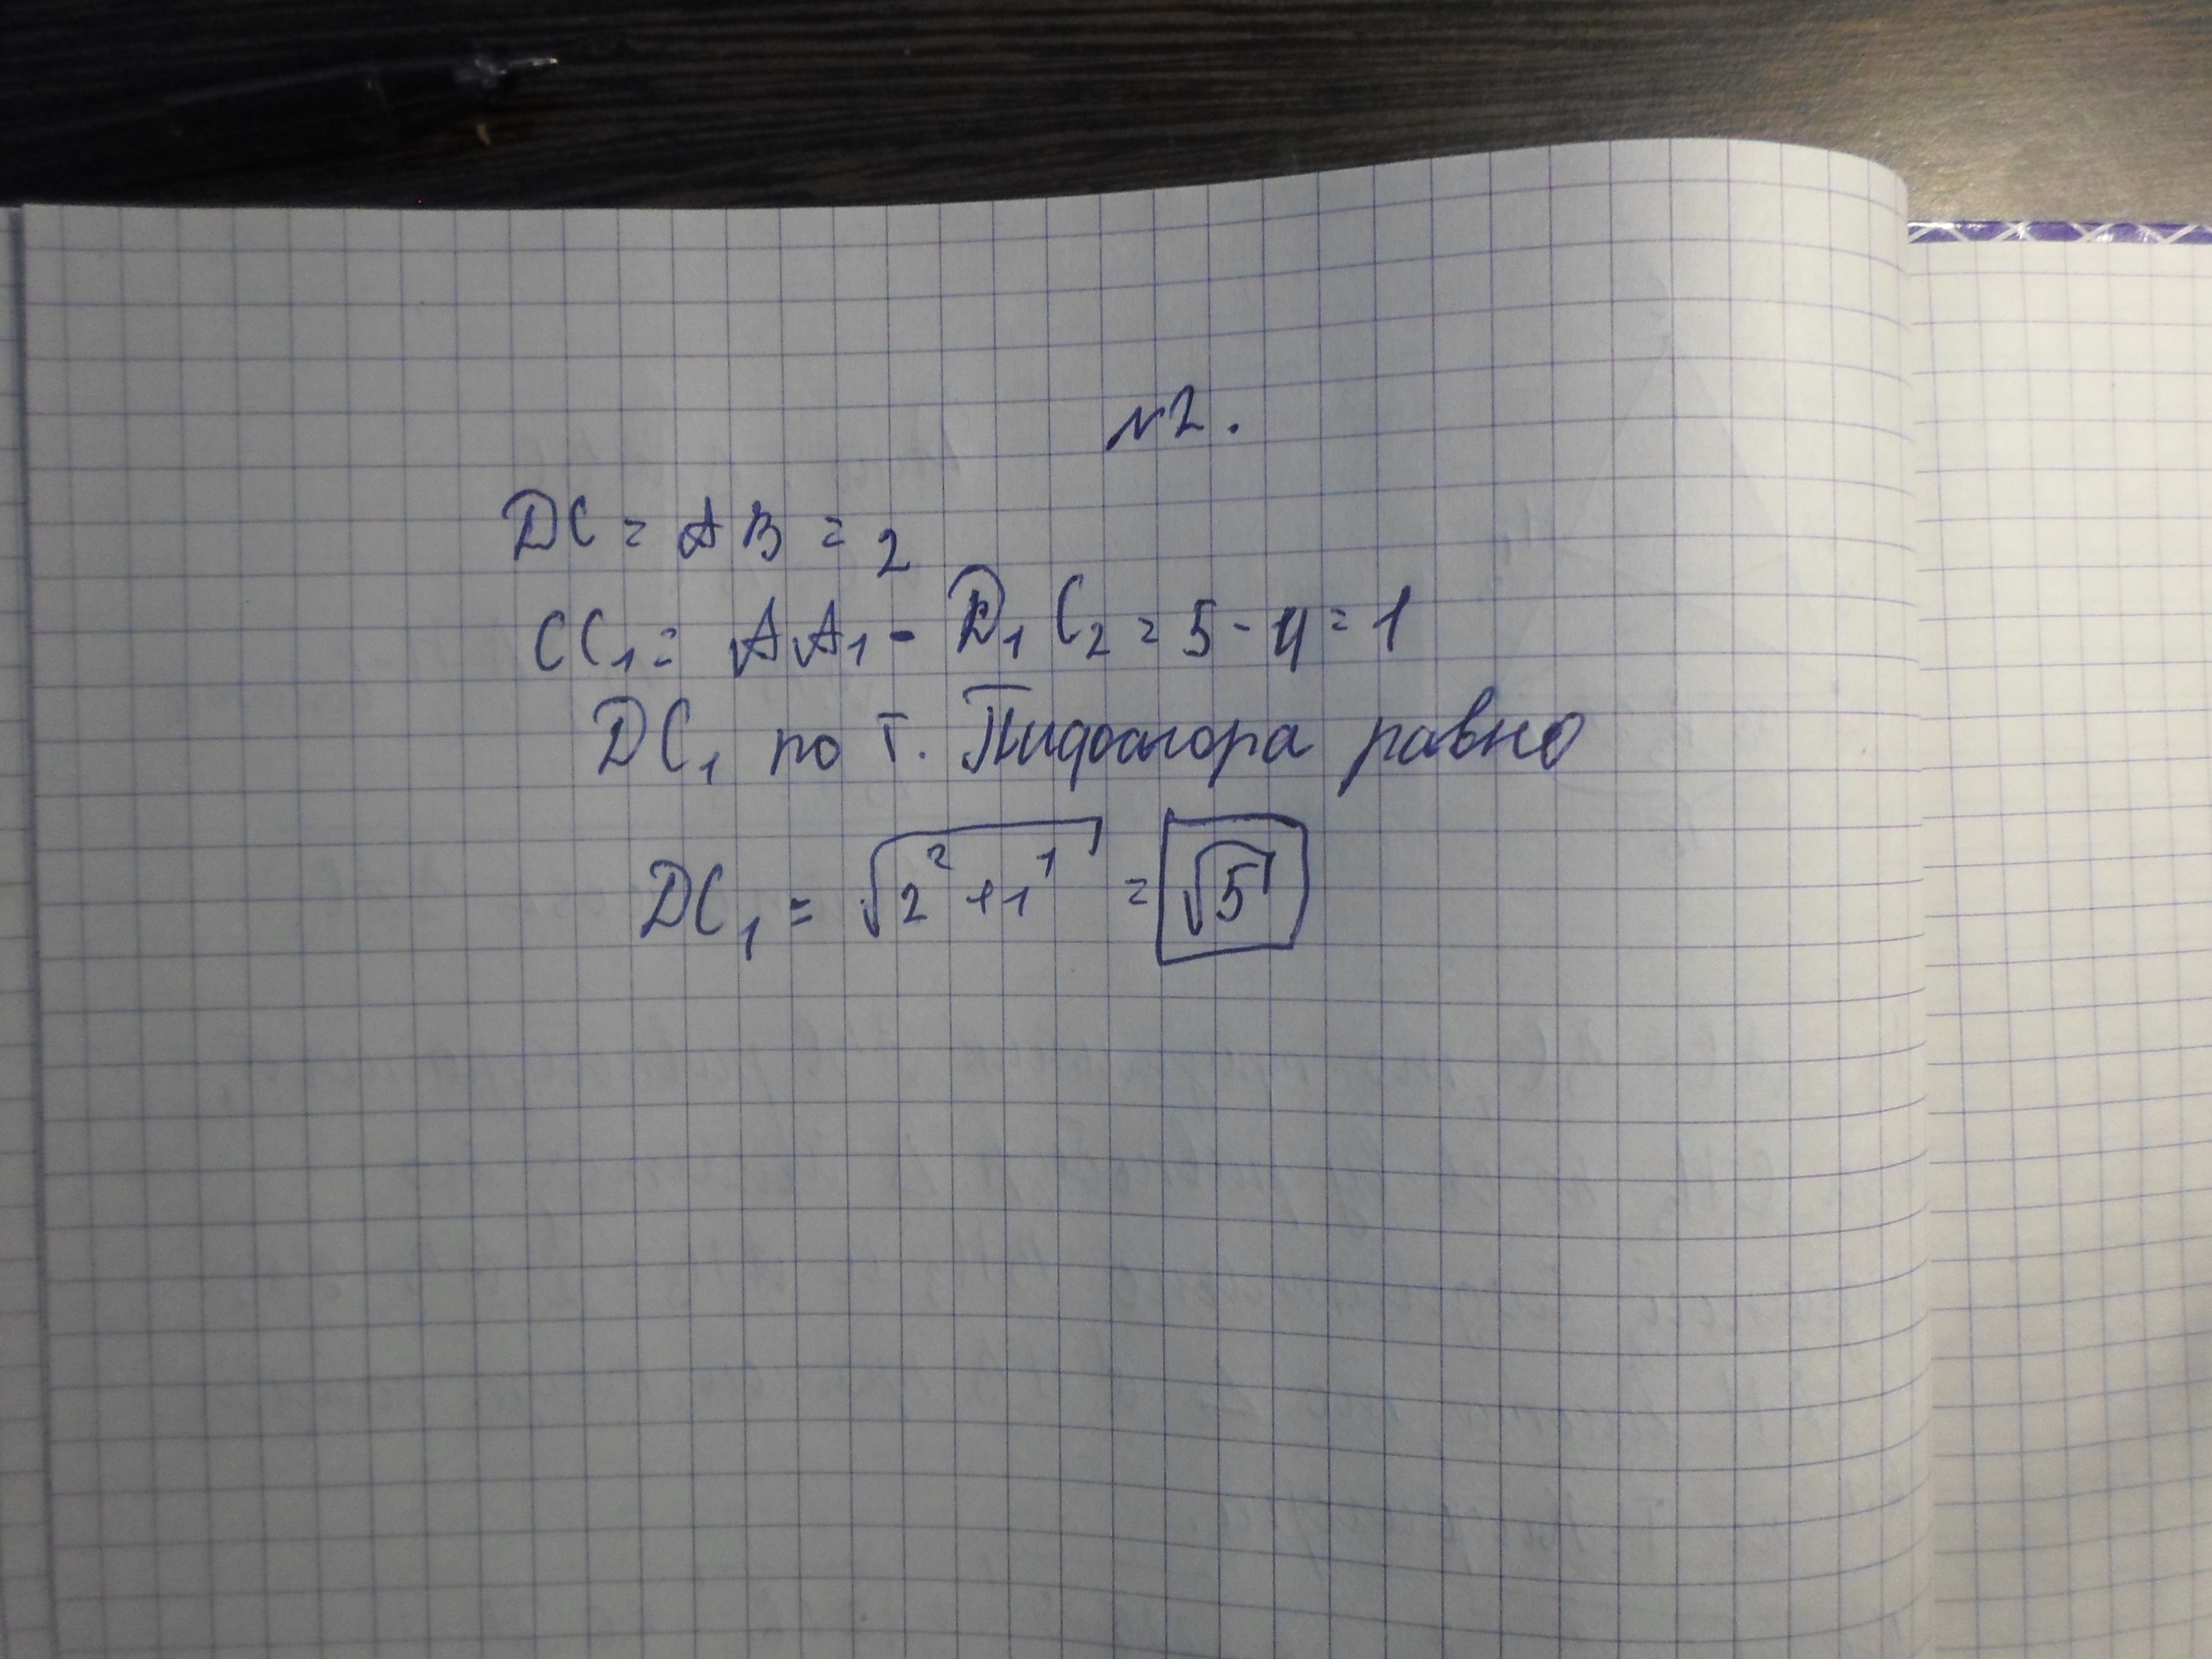 №2.
DC = AB = 2
CC₁ = AA₁ - D₁C₂ = 5 - 4 = 1
DC₁ по т. Пифагора равно
DC₁ = √(2² + 1¹) = √5